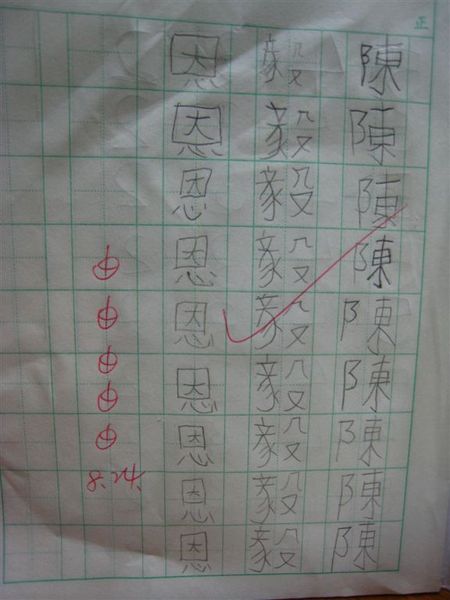 正
陳陳陳陳陳陳陳陳陳
毅毅毅毅毅毅毅毅毅
恩恩恩恩恩恩恩恩恩
8.24.